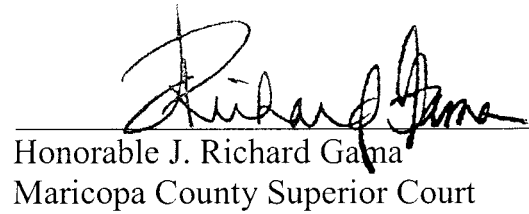 Richard Gama
Honorable J. Richard Gama
Maricopa County Superior Court